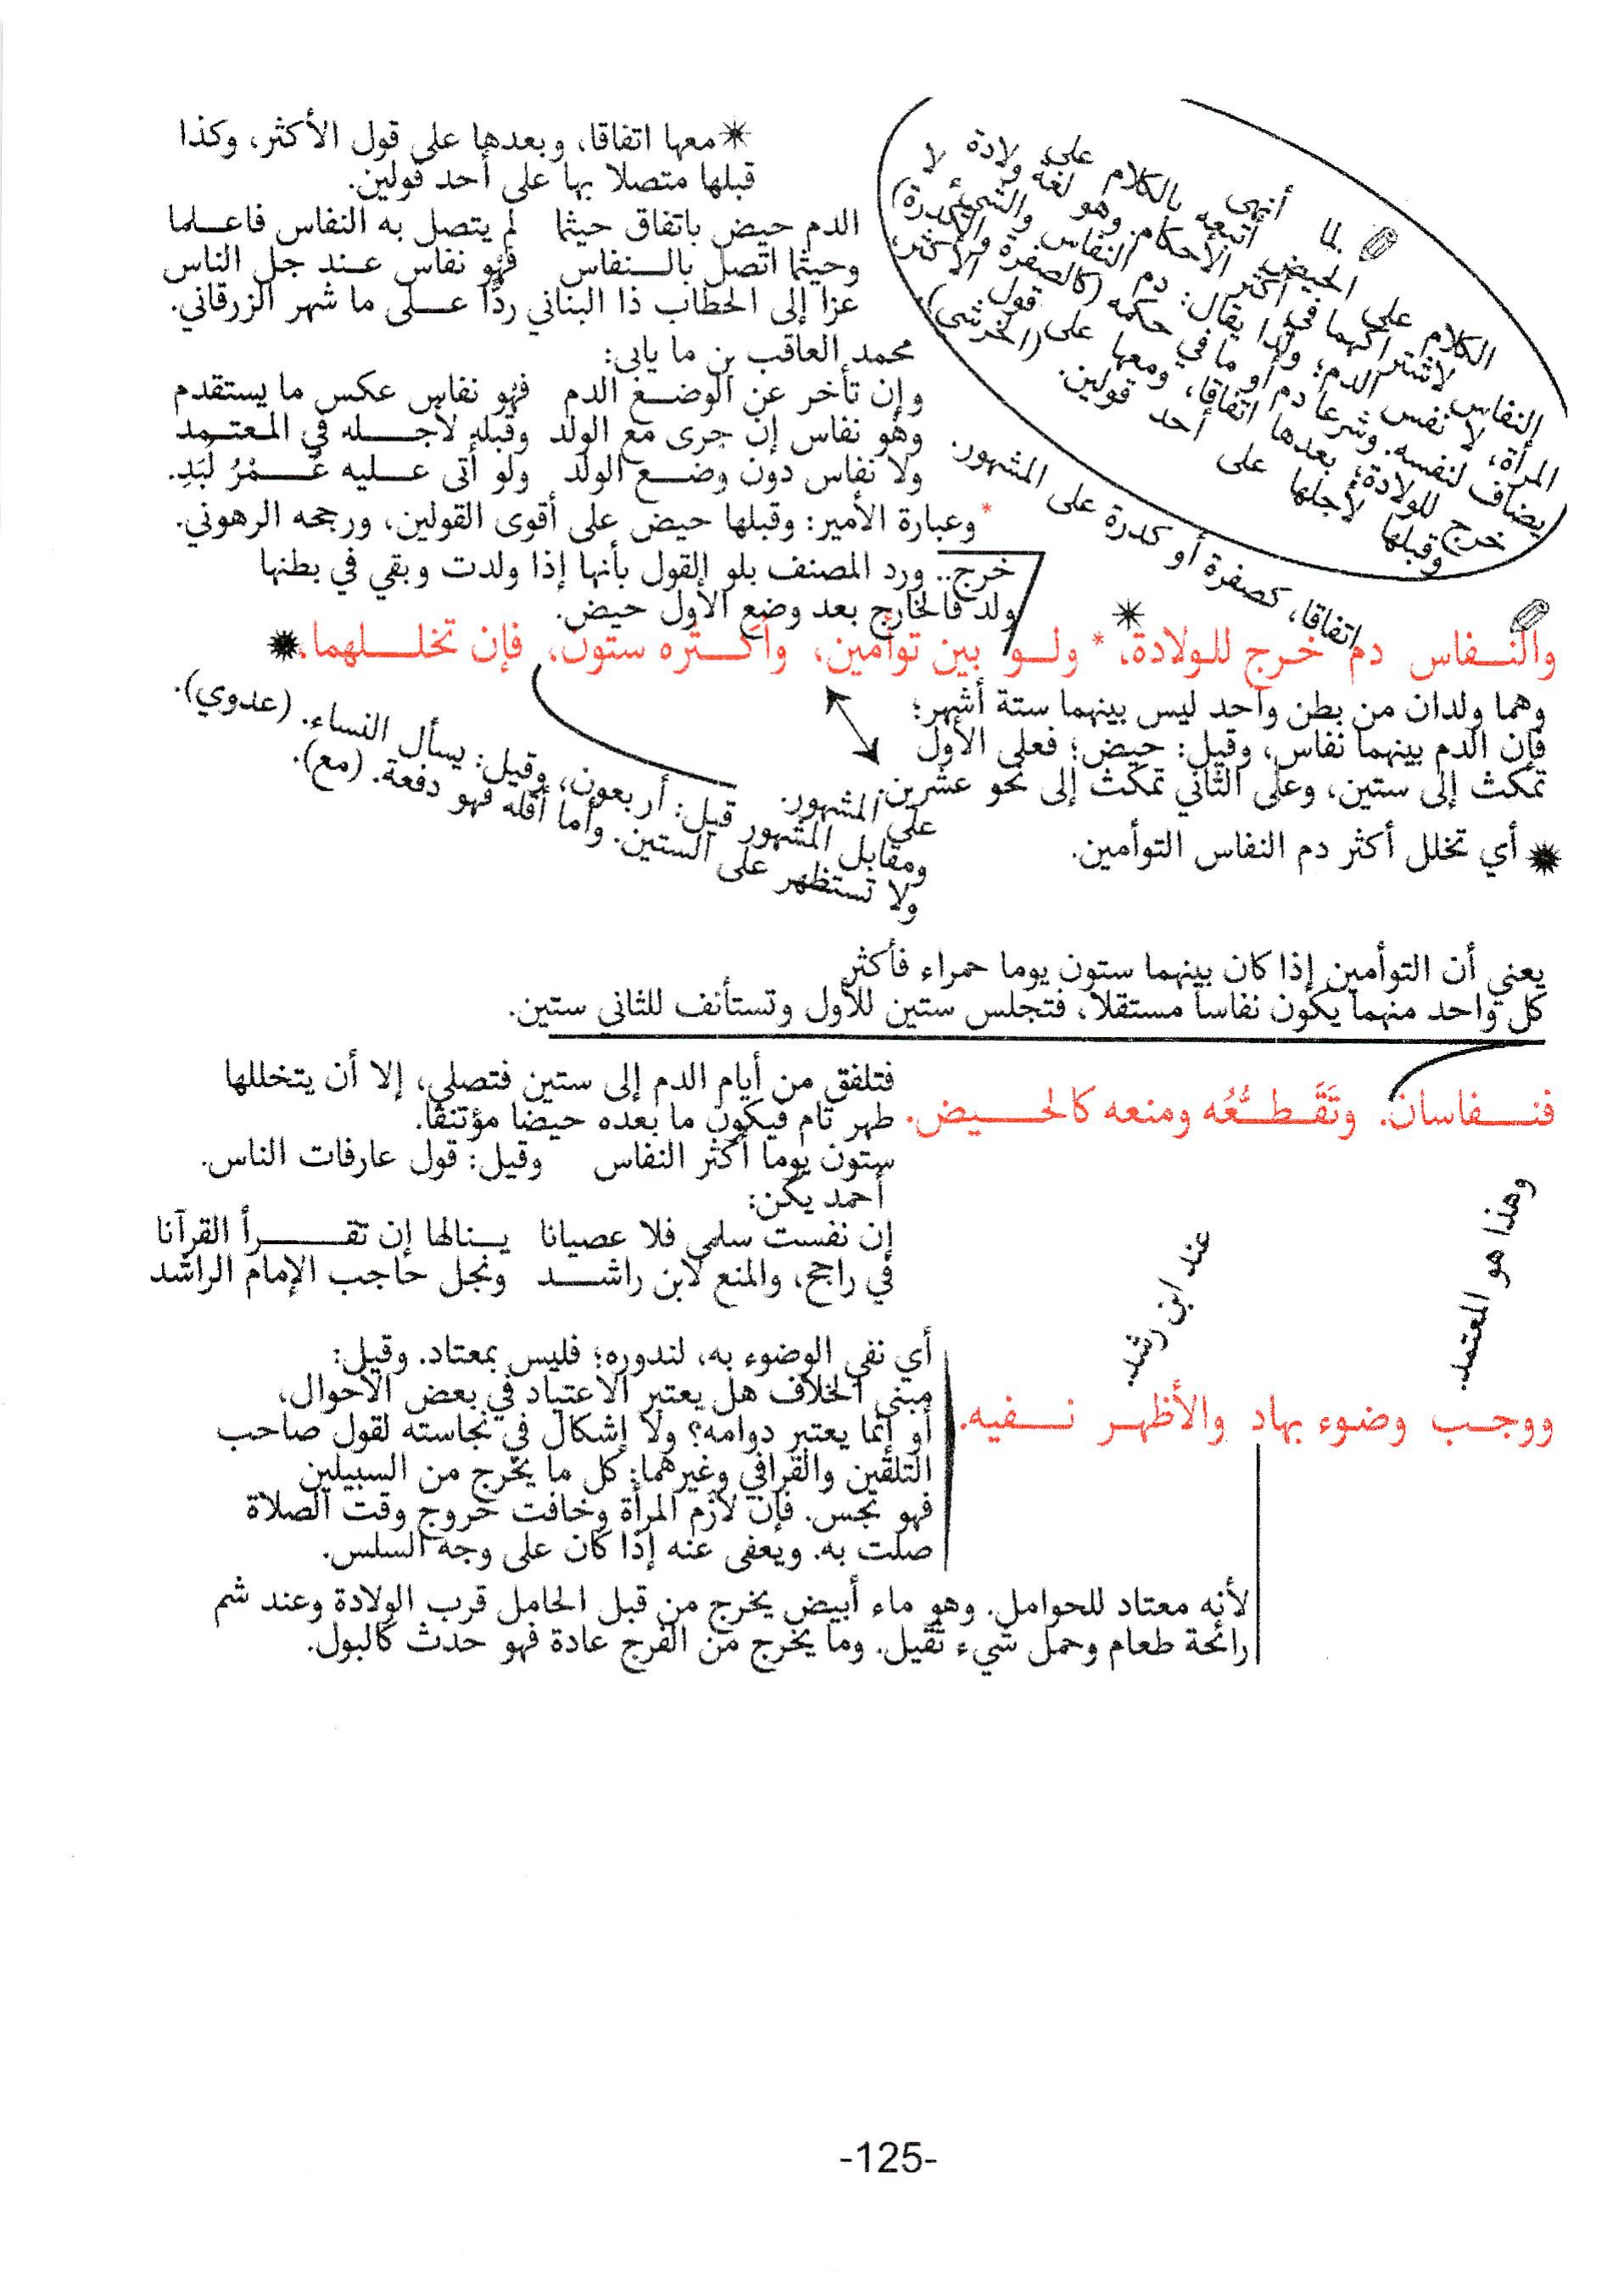 ✴معها اتفاقا، وبعدها على قول الأكثر، وكذا
قبلها متصلا بها على أحد قولين.
الدم حيض باتفاق حيثما لم يتصل به النفاس فاعـلما
وحيثما اتصل بالـنفاس فهو نفاس عـند جل الناس
عزا إلى الحطاب ذا البناني ردًّا عـلى ما شهر الزرقاني.
محمد العاقب بن ما يابى:
وإن تأخر عن الوضـع الدم فهو نفاس عكس ما يستقدم
وهو نفاس إن جرى مع الولد وقبله لأجـله في المعتـمد
ولا نفاس دون وضـع الولد ولو أتى عـليه عُـمْرُ لُبَدِ.
*وعبارة الأمير: وقبلها حيض على أقوى القولين، ورجحه الرهوني.
خرج.. ورد المصنف بلو القول بأنها إذا ولدت وبقي في بطنها
ولد فالخارج بعد وضع الأول حيض.
لما أنهى الكلام على الحيض أتبعه بالكلام على
النفاس لاشتراكهما في أكثر الأحكام. وهو لغة ولادة
المرأة، لا نفس الدم؛ ولذا يقال: دم النفاس والشيء لا
يضاف لنفسه. وشرعا دم أو ما في حكمه (كالصفرة والكدرة)
خرج للولادة؛ بعدها اتفاقا، ومعها على قول الأكثر،
وقبلها لأجلها على أحد قولين. (الخرشي).
اتفاقا، كصفرة أو كدرة على المشهور.
والنـفاس دم خرج للولادة.* ولـو بين توأمين، وأكـثره ستون، فإن تخلـلهما.✴
وهما ولدان من بطن واحد ليس بينهما ستة أشهر؛
فإن الدم بينهما نفاس، وقيل: حيض؛ فعلى الأول
تمكث إلى ستين، وعلى الثاني تمكث إلى نحو عشرين.
على المشهور.
ومقابل المشهور قيل: أربعون، وقيل: يسأل النساء. (عدوي).
ولا تستظهر على الستين. وأما أقله فهو دفعة. (مع).
✴أي تخلل أكثر دم النفاس التوأمين.
يعني أن التوأمين إذا كان بينهما ستون يوما حمراء فأكثر
كل واحد منهما يكون نفاسا مستقلا، فتجلس ستين للأول وتستأنف للثاني ستين.
فنـفاسان. وتَقَـطـُّعُه ومنعه كالحـيض.
فتلفق من أيام الدم إلى ستين فتصلي، إلا أن يتخللها
طهر تام فيكون ما بعده حيضا مؤتنفا.
ستون يوما أكثر النفاس وقيل: قول عارفات الناس.
أحمد يكن:
إن نفست سلمى فلا عصيانا يـنالها إن تقـرأ القرآنا
في راجح، والمنع لابن راشـد ونجل حاجب الإمام الراشد
وهذا هو المعتمد.
عند ابن رشد.
ووجـب وضوء بهاد والأظهـر نـفيه.
أي نفي الوضوء به، لندوره؛ فليس بمعتاد. وقيل:
مبنى الخلاف هل يعتبر الاعتياد في بعض الأحوال،
أو إنما يعتبر دوامه؟ ولا إشكال في نجاسته لقول صاحب
التلقين والقرافي وغيرهما: كل ما يخرج من السبيلين
فهو نجس. فإن لازم المرأة وخافت خروج وقت الصلاة
صلت به. ويعفى عنه إذا كان على وجه السلس.
لأنه معتاد للحوامل. وهو ماء أبيض يخرج من قبل الحامل قرب الولادة وعند شم
رائحة طعام وحمل شيء ثقيل. وما يخرج من الفرج عادة فهو حدث كالبول.
-125-